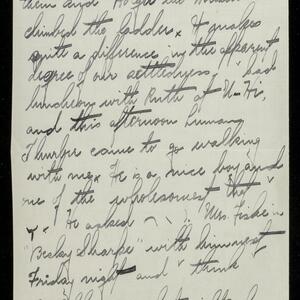 them and
climbed the ladder. It makes
quite a difference in the apparent
degree of our settledness. I had
luncheon with Ruth at U-Hi,
and this afternoon
came to go walking
with me. He is a nice boy, and
one of the wholesomest that
I He asked Mrs Fiske in
"Becky Sharpe" with him next
Friday night and I think